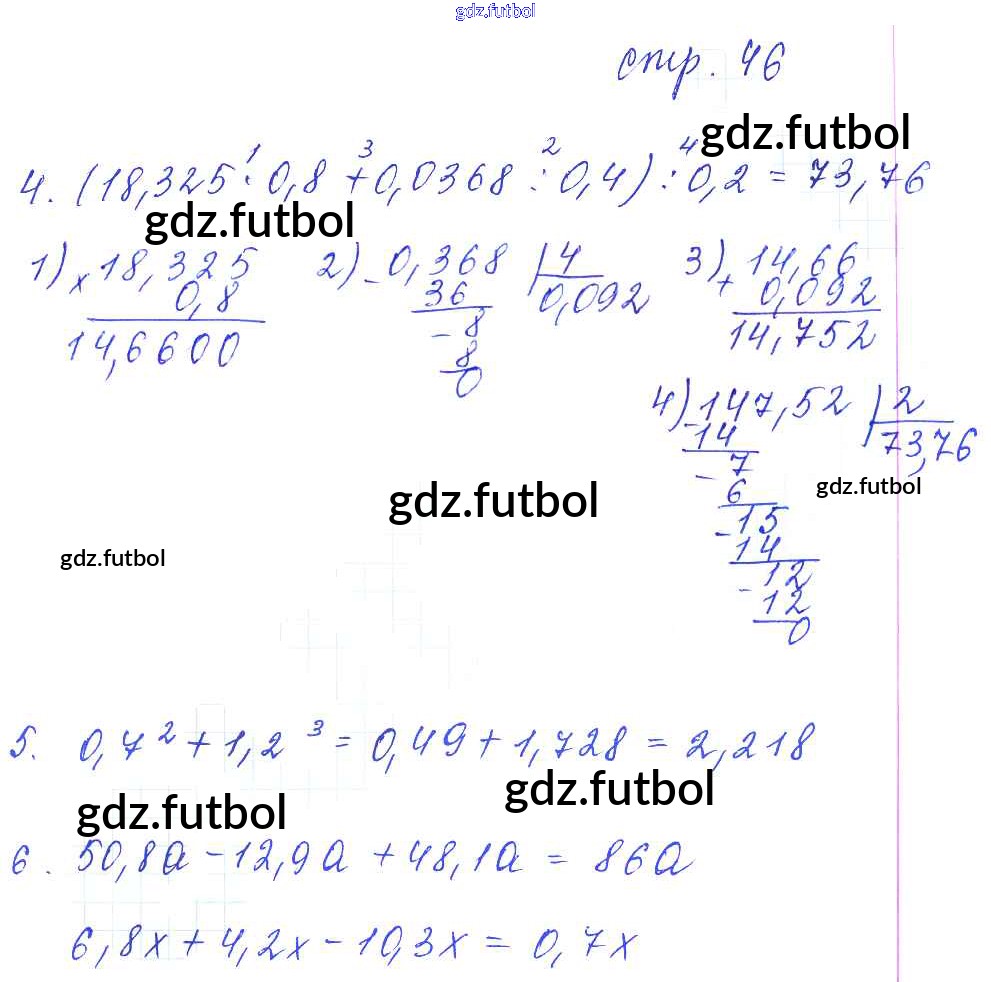 gdz.futbol
стр. 46
gdz.futbol
4. (18,325 · 0,8 + 0,0368 : 0,4) : 0,2 = 73,76
1 3 2 4
gdz.futbol
1) × 18,325
0,8
14,6600
2) - 0,368 | 4
36 0,092
- 8
8
0
3) + 14,66
0,092
14,752
4) - 147,52 | 2
14 73,76
- 7
6
- 15
14
- 12
12
0
gdz.futbol
gdz.futbol
gdz.futbol
5. 0,7² + 1,2³ = 0,49 + 1,728 = 2,218
gdz.futbol
gdz.futbol
6. 50,8а - 12,9а + 48,1а = 86а
6,8х + 4,2х - 10,3х = 0,7х